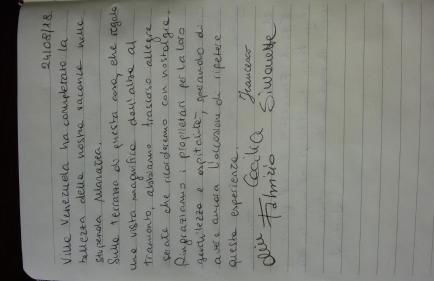 24/08/18
Villa Venezuela ha completato la
bellezza delle nostre vacanze nella
stupenda Maratea.
Sulla terrazza di questa casa, che regala
una vista magnifica dall'alba al
tramonto, abbiamo trascorso allegre
serate che ricorderemo con nostalgia.
Ringraziamo i proprietari per la loro
gentilezza e ospitalità, sperando di
avere ancora l'occasione di ripetere
questa esperienza.
Cecilia Francesco
Fabrizio Simonetta